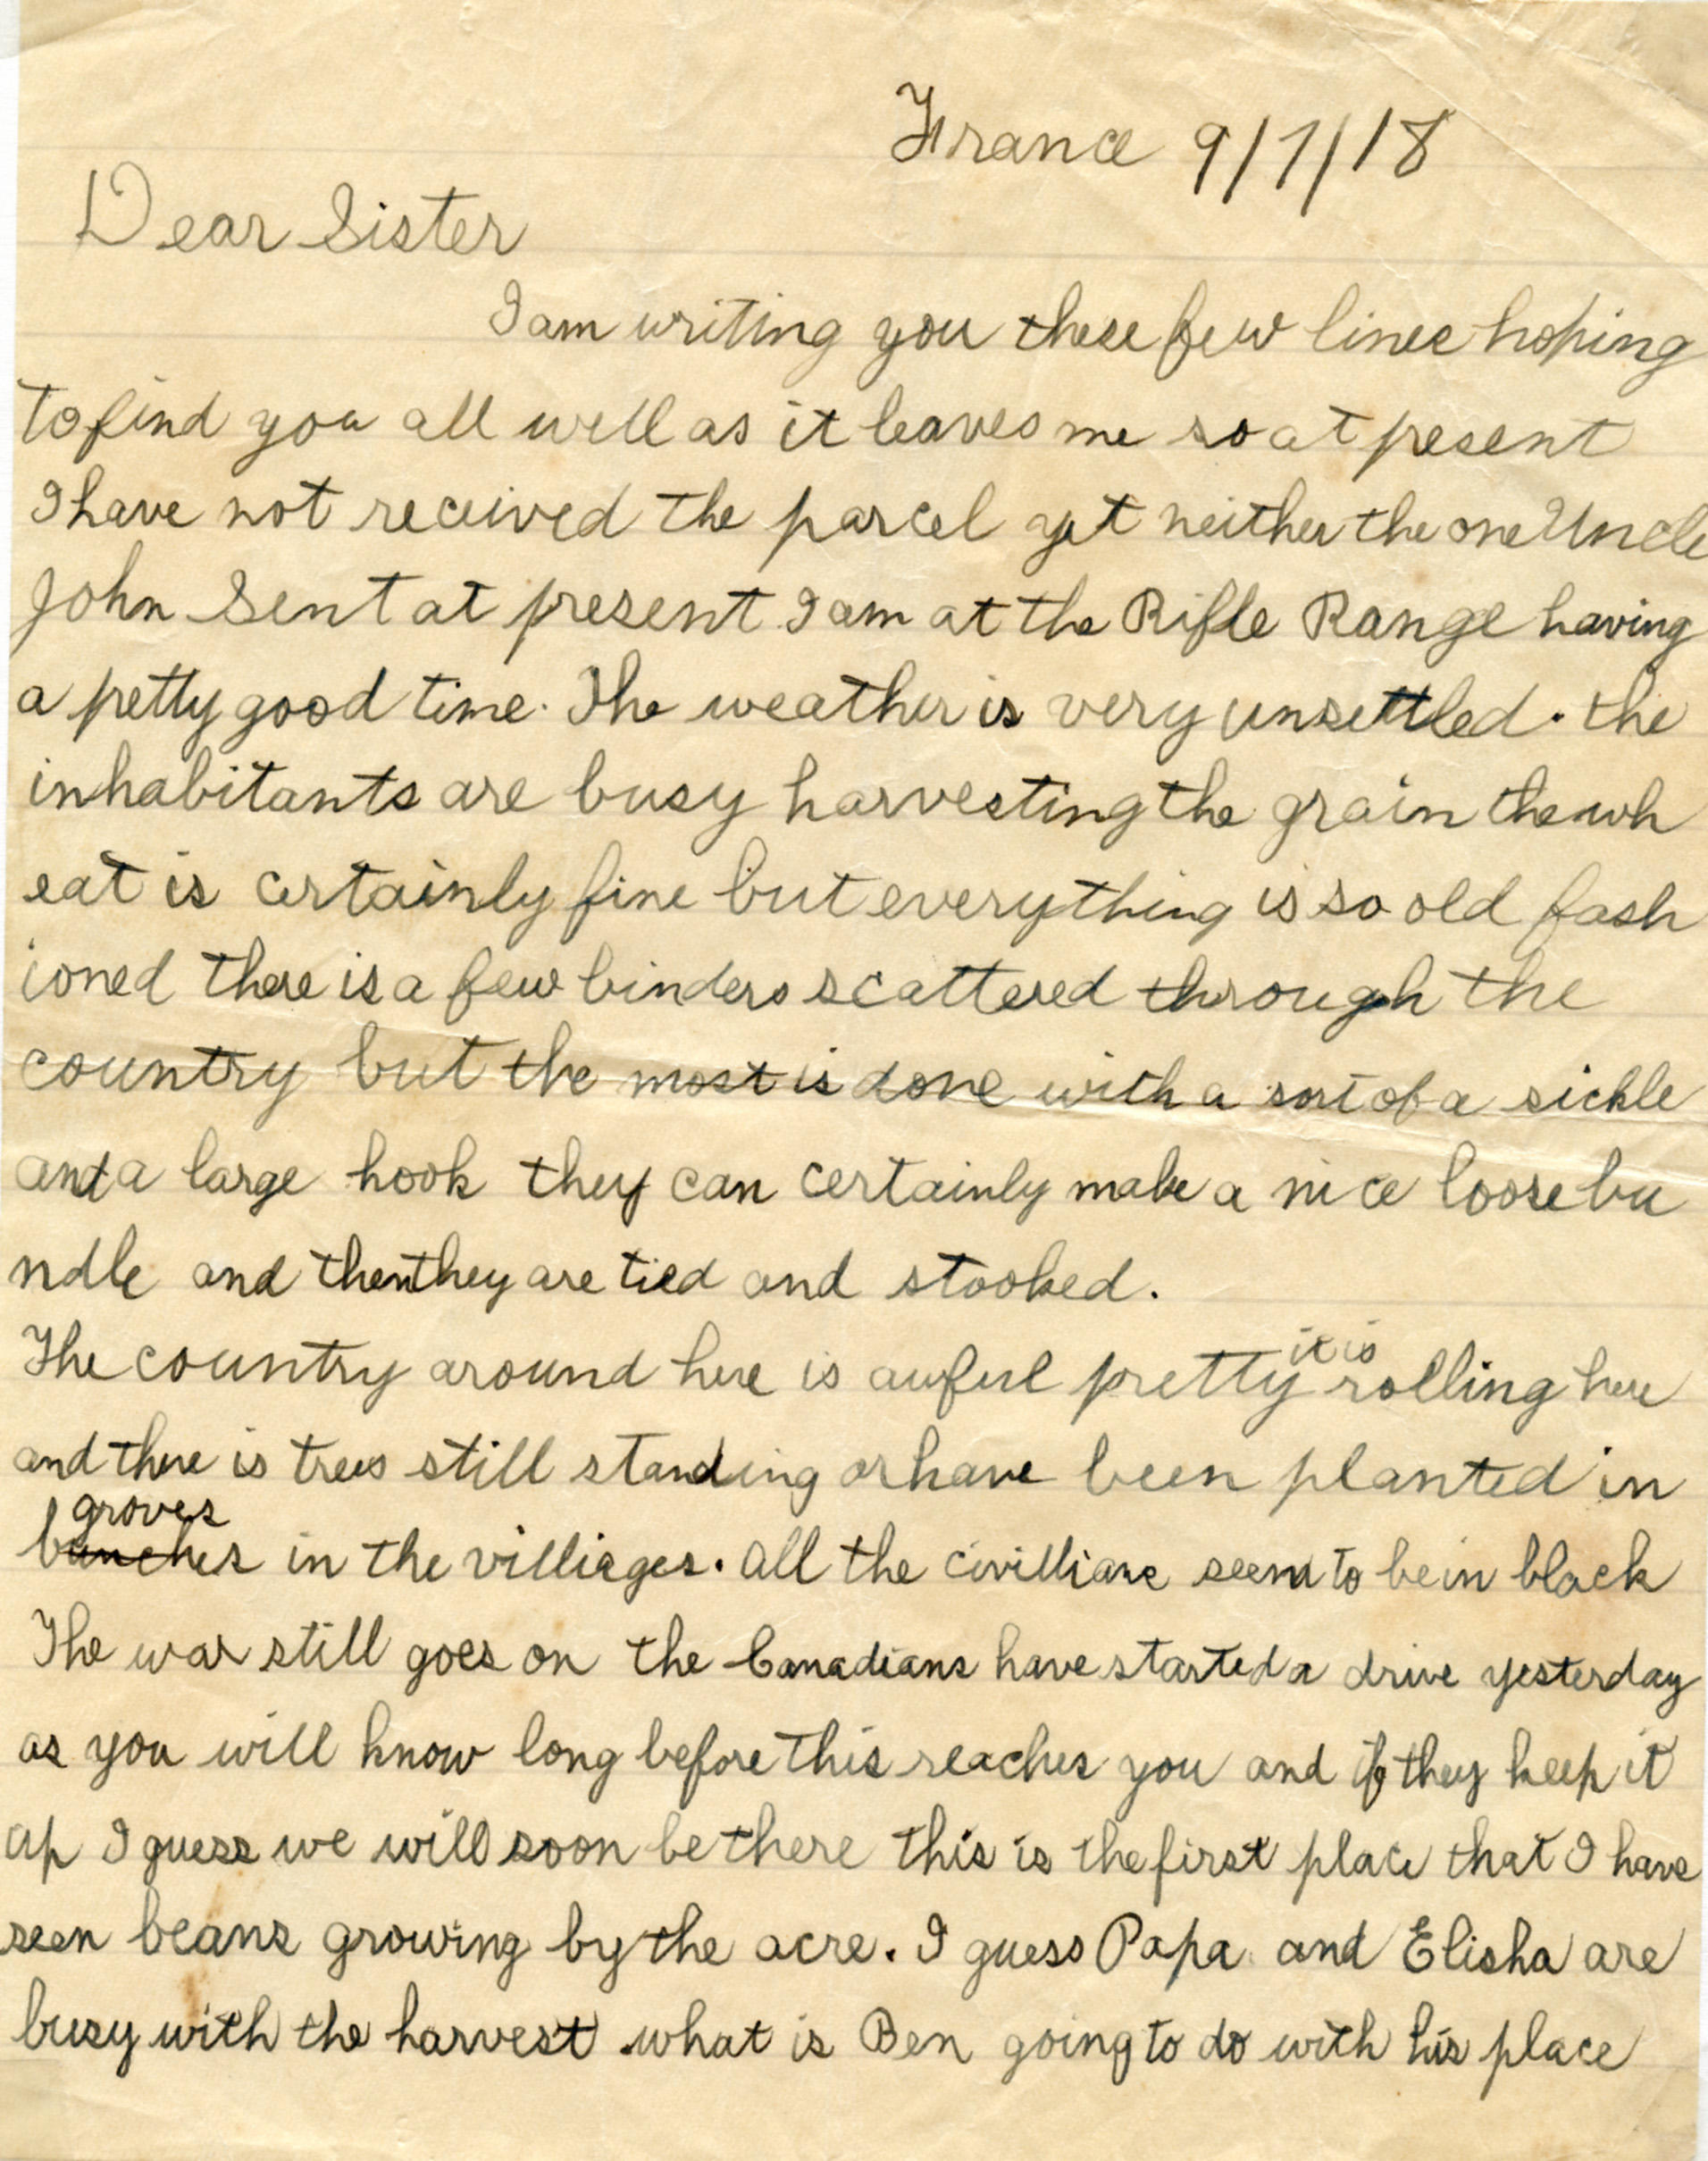 France 9/7/18
Dear Sister
I am writing you these few lines hoping
to find you all well as it leaves me so at present
I have not received the parcel yet neither the one Uncle
John Sent at present I am at the Rifle Range having
a pretty good time. The weather is very unsettled. the
inhabitants are busy harvesting the grain the wh
eat is certainly fine but everything is so old fash
ioned there is a few binders scattered through the
country but the most is done with a sort of a sickle
and a large hook they can certainly make a nice loose bu
ndle and then they are tied and stooked.
The country around here is awful pretty it is rolling here
and there is trees still standing or have been planted in
groves
bunches in the villiages. all the civillians seem to be in black
The war still goes on the Canadians have started a drive yesterday
as you will know long before this reaches you and if they keep it
up I guess we will soon be there this is the first place that I have
seen beans growing by the acre. I guess Papa and Elisha are
busy with the harvest. what is Ben going to do with his place